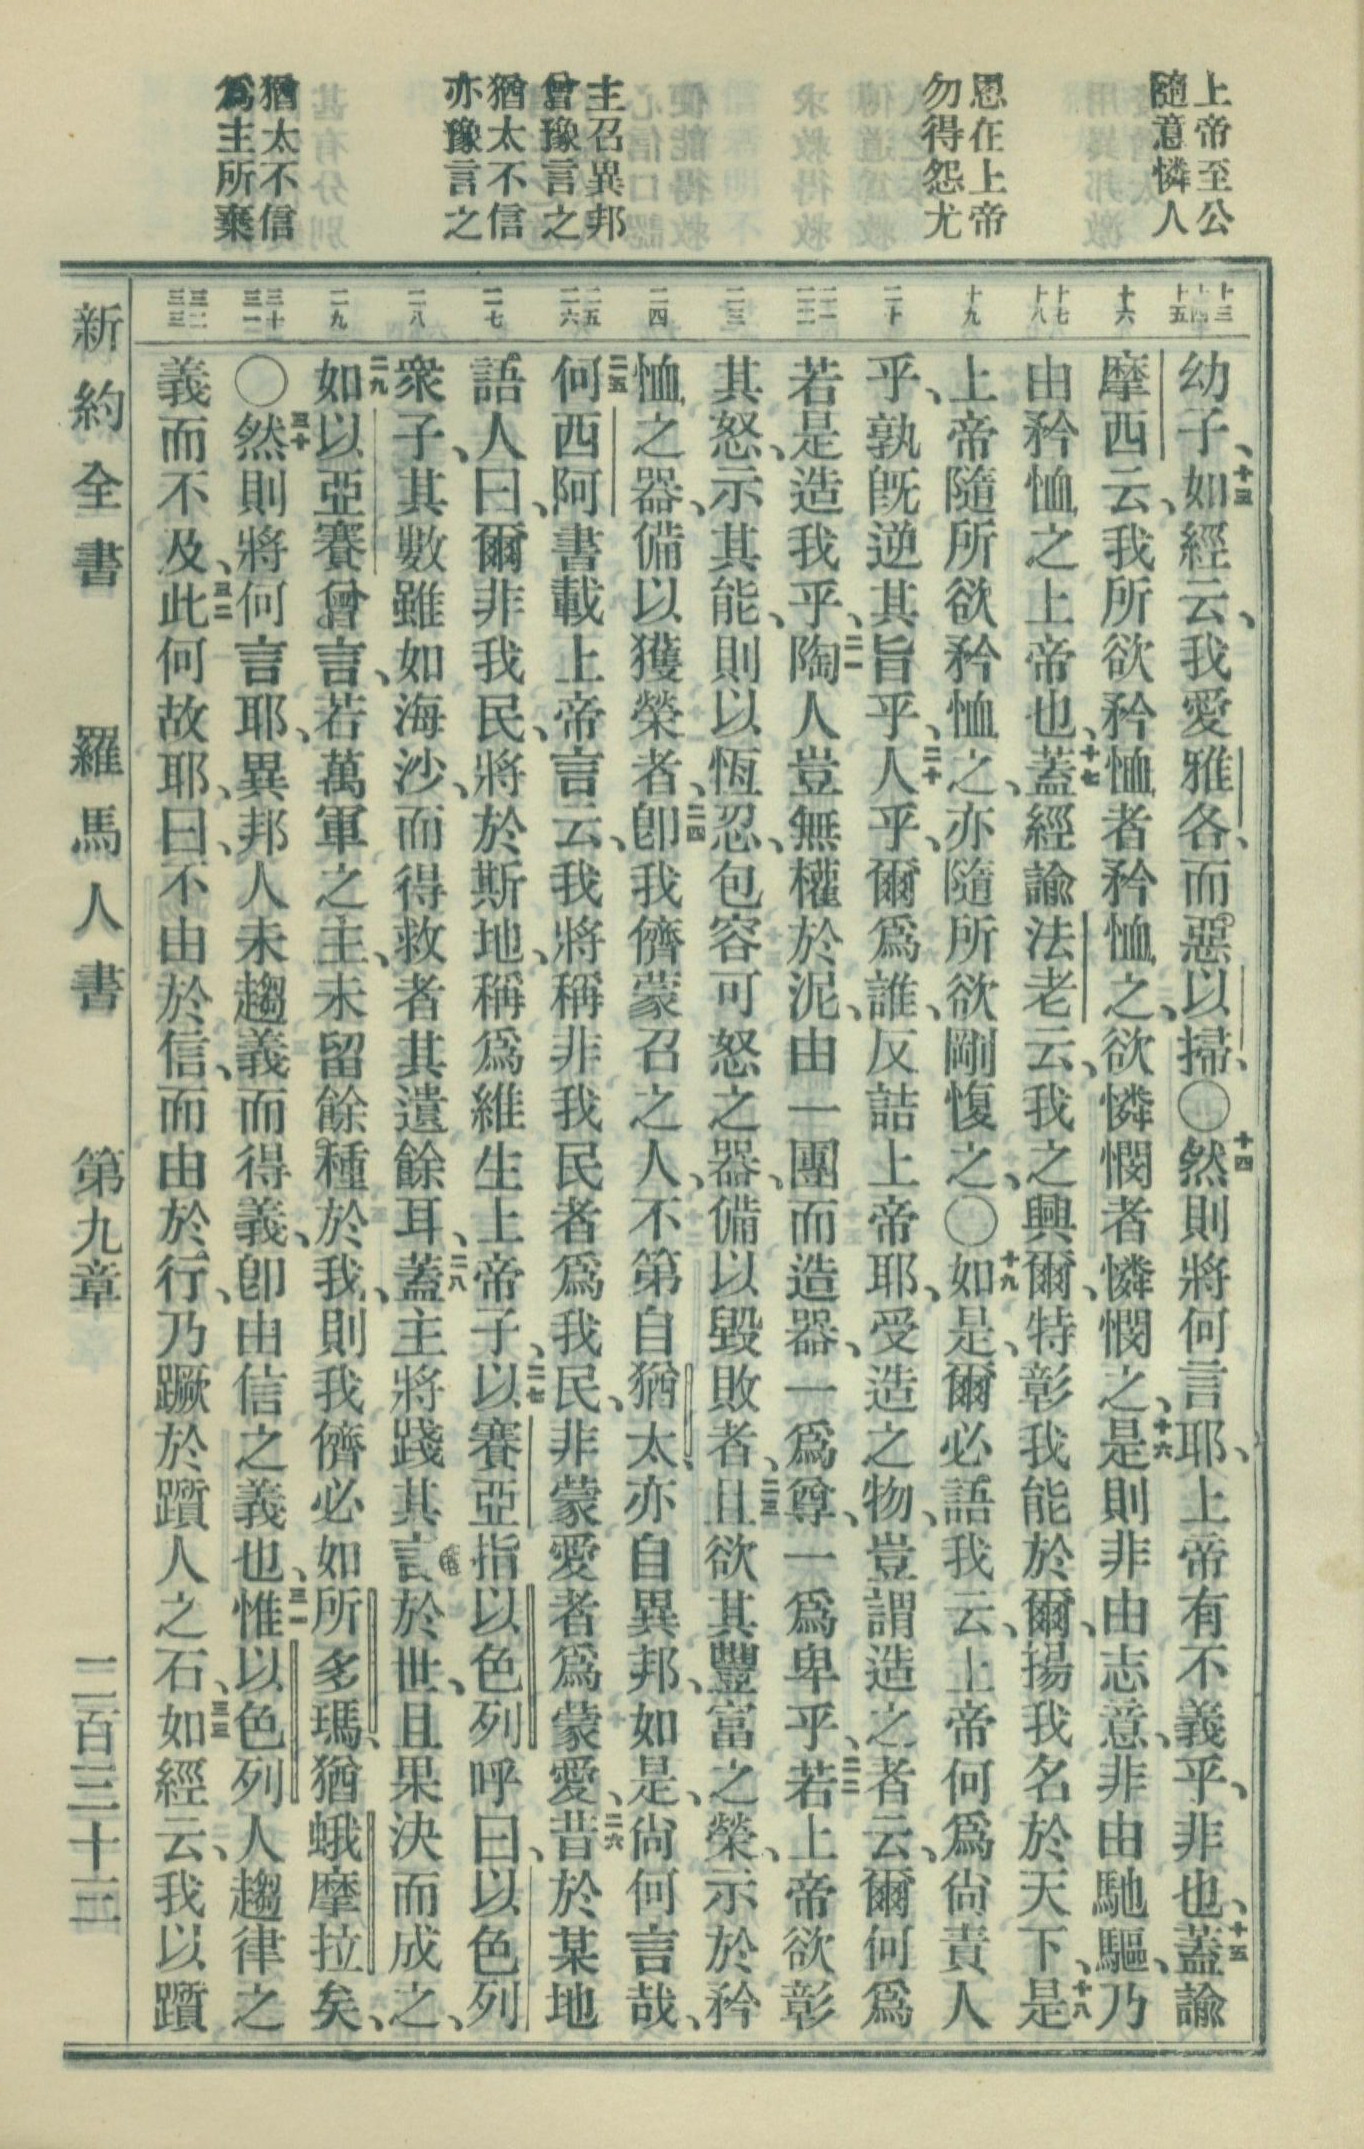 上帝至公
隨意憐人
恩在上帝
勿得怨尤
主召異邦
曾豫言之
猶太不信
亦豫言之
猶太不信
爲主所棄
十三
十四
十五
十六
十七
十八
十九
二十
二一
二二
二三
二四
二五
二六
二七
二八
二九
三十
三一
三二
三三
幼子、十三如經云、我愛雅各、而惡以掃、〇十四然則將何言耶、上帝有不義乎、非也、十五蓋諭
摩西云、我所欲矜恤者矜恤之、欲憐憫者憐憫之、十六是則非由志意、非由馳驅、乃
由矜恤之上帝也、十七蓋經諭法老云、我之興爾、特彰我能於爾、揚我名於天下、十八是
上帝隨所欲矜恤之、亦隨所欲剛愎之、〇十九如是、爾必語我云、上帝何爲尙責人
乎、孰旣逆其旨乎、二十人乎、爾爲誰、反詰上帝耶、受造之物、豈謂造之者云、爾何爲
若是造我乎、二一陶人豈無權於泥、由一團而造器、一爲尊、一爲卑乎、二二若上帝欲彰
其怒、示其能、則以恆忍、包容可怒之器、備以毀敗者、二三且欲其豐富之榮、示於矜
恤之器、備以獲榮者、二四卽我儕蒙召之人、不第自猶太、亦自異邦、如是、尙何言哉、
二五何西阿書載上帝言云、我將稱非我民者爲我民、非蒙愛者爲蒙愛、二六昔於某地
語人曰、爾非我民、將於斯地、稱爲維生上帝子、二七以賽亞指以色列呼曰、以色列
衆子、其數雖如海沙、而得救者其遺餘耳、二八蓋主將踐其言、於世、且果決而成之、
二九如以亞賽曾言、若萬軍之主、未留餘種於我、則我儕必如所多瑪、猶蛾摩拉矣、
〇三十然則將何言耶、異邦人未趨義而得義、卽由信之義也、三一惟以色列人趨律之
義而不及、三二此何故耶、曰、不由於信、而由於行、乃蹶於躓人之石、三三如經云、我以躓
新約全書　羅馬人書　第九章　二百三十三